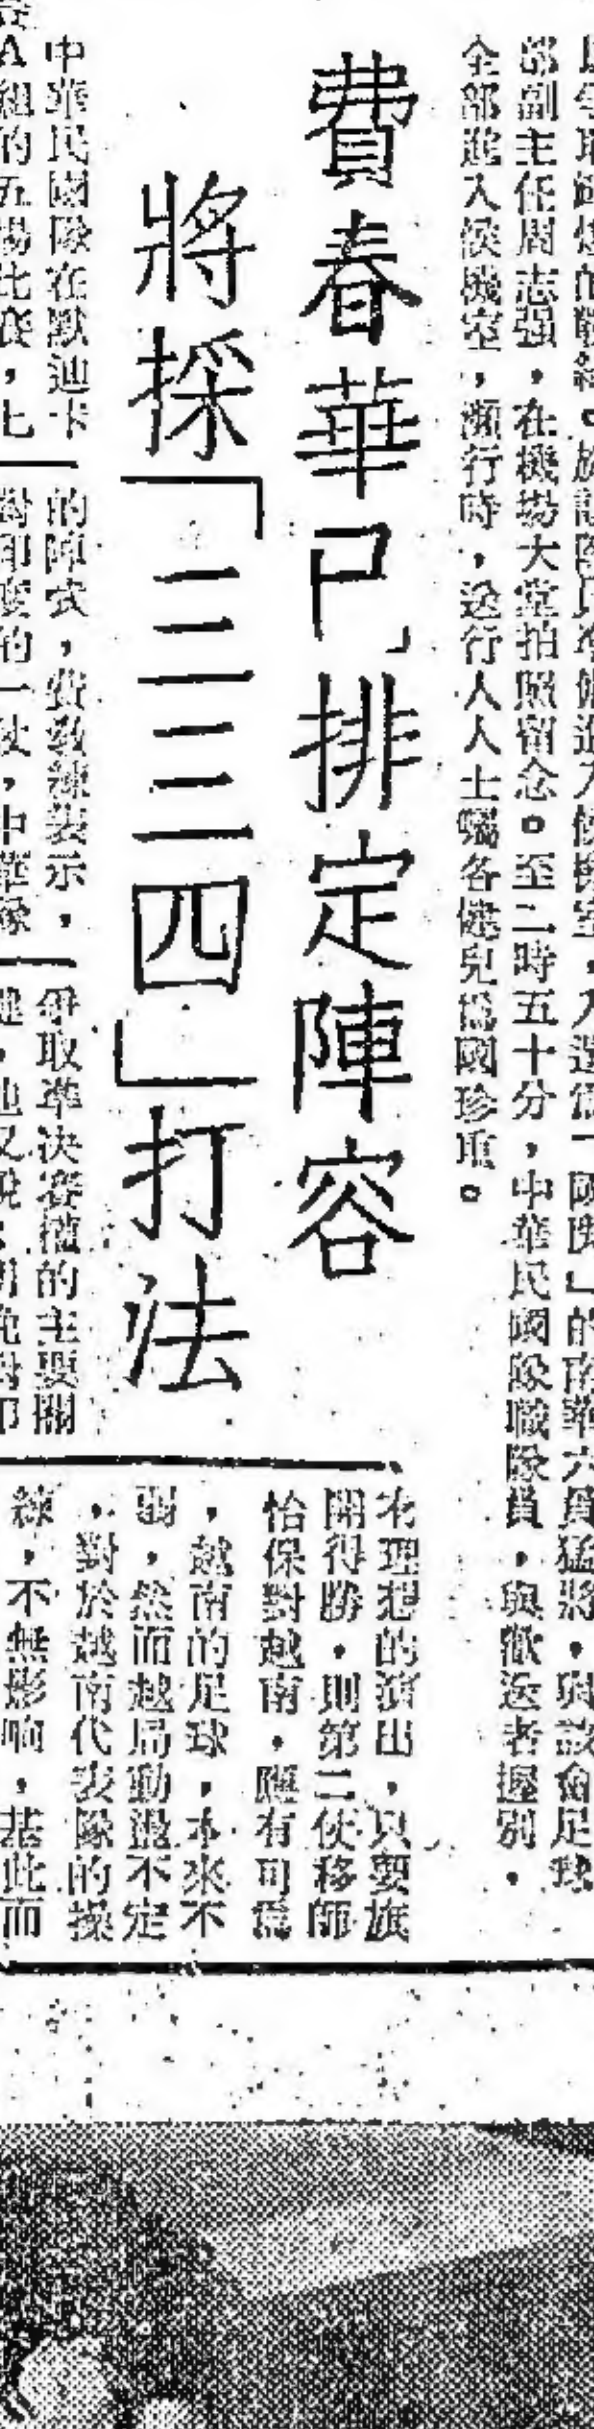 部副主任周志强，在機場大堂拍照留念。至二時五十分，中華民國隊職隊員，與歡送者握別，
全部進入候機室，瀕行時，送行人人士囑各健兒爲國珍重。
費春華已排定陣容
將採「三三四」打法
有理想的演出，只要旗
開得勝，則第二仗移師
怡保對越南，應有可爲
，越南的足球，本來不
弱，然而越局動盪不定
，對於越南代表隊的操
練，不無影响，基此而
中華民國隊在默迪卡
A組的五場比賽，七
的陣式，費教練表示，
對印度的一仗，中華隊
爭取準决賽權的主要關